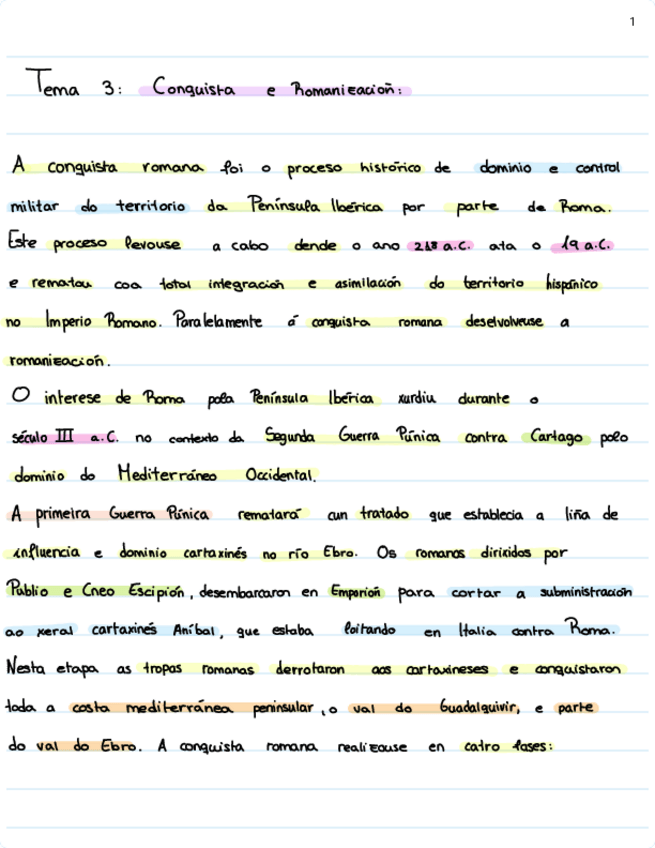 1
Tema 3: Conquista e Romanización:
A conquista romana foi o proceso histórico de dominio e control
militar do territorio da Península Ibérica por parte de Roma.
Este proceso levouse a cabo dende o ano 218 a.C. ata o 19 a.C.
e rematou coa total integración e asimilación do territorio hispánico
no Imperio Romano. Paralelamente á conquista romana deselvolveuse a
romanización.
O interese de Roma pola Península Ibérica xurdiu durante o
século III a.C. no contexto da Segunda Guerra Púnica contra Cartago polo
dominio do Mediterráneo Occidental.
A primeira Guerra Púnica rematará cun tratado que establecía a liña de
influencia e dominio cartaxinés no río Ebro. Os romanos dirixidos por
Publio e Cneo Escipión, desembarcaron en Emporión para cortar a subministración
ao xeral cartaxinés Aníbal, que estaba loitando en Italia contra Roma.
Nesta etapa as tropas romanas derrotaron aos cartaxineses e conquistaron
toda a costa mediterránea peninsular, o val do Guadalquivir, e parte
do val do Ebro. A conquista romana realizouse en catro fases: